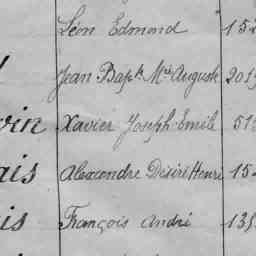 Léon Edmond 152
Jean Bapte Mie Auguste 201
vin Xavier Joseph Emile 51
ais Alexandre Désiré Henri 15
is François André 138